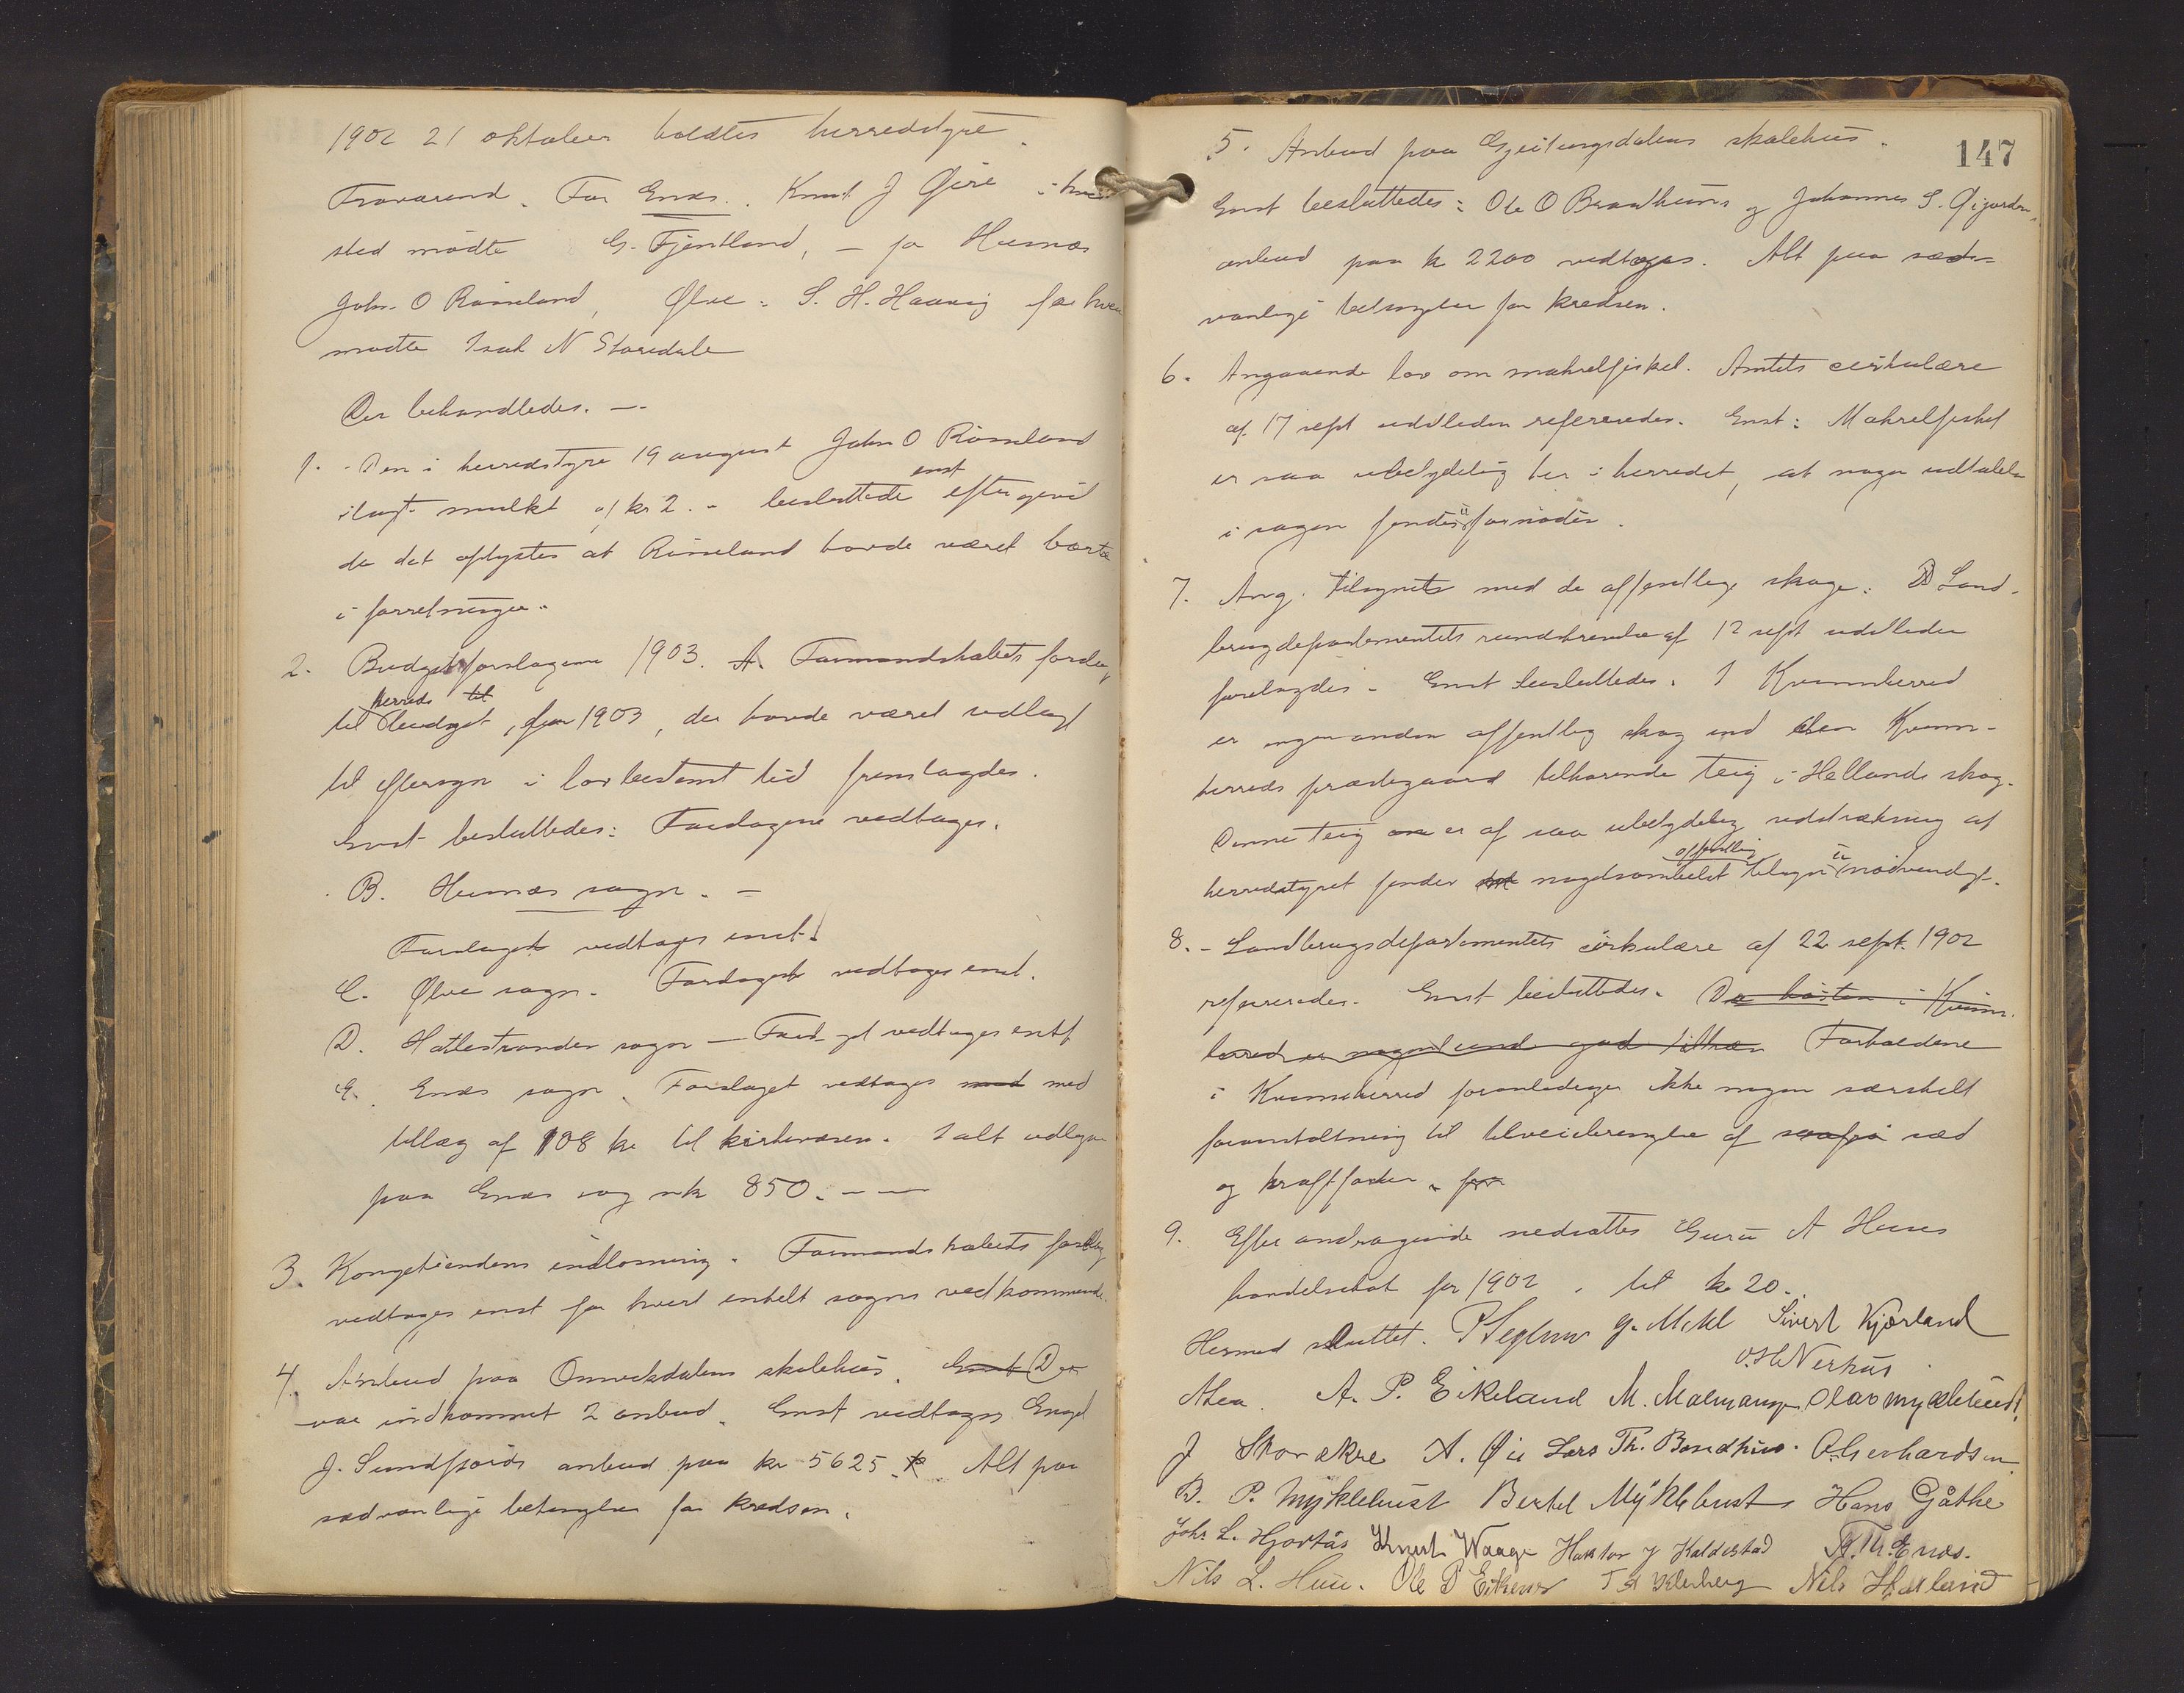 1902 21 oktober holdtes herredstyre.
Fraværend. For Enæs. Knut J Øire i hvis
sted mødte G. Fjentland, – for Husnæs
John O Røiseland, Ølve: S. H. Haavig for hvem
mødte Isak N Staredale
Der behandledes. —
1. - Den i herredstyre 19 august John O Røiseland
ilagt mulkt af kr 2. - besluttede enst eftergivet
da det oplystes at Røiseland havde været borte
i forretninger.
2. Budgetforslagene 1903. A. Formandskabets forslag
herreds til
til budget, for 1903, der havde været udlagt
til eftersyn i lovbestemt tid fremlagdes.
Enst besluttedes: Forslagene vedtages.
B. Husnæs sogn. —
Forslaget vedtages enst.
C. Ølve sogn. Forslaget vedtages enst.
D. Hatlestranden sogn — Forslaget vedtages enst
E. Enæs sogn. Forslaget vedtages med med
tillæg af 108 kr til kirkevæsen. Ialt udlignes
paa Enæs sogn kr 850. — —
3. Kongetiendens indløsning. Formandskabets forslag
vedtages enst for hvert enkelt sogns vedkommende.
4. Anbud paa Omvikdalens skolehus. Enst Der
var indkommet 2 anbud. Enst vedtages Engel
J. Sundfjords anbud paa kr 5625. Alt paa
sædvanlige betingelser for kredsen.
147
5. Anbud paa Gjeitungsdalens skolehus.
Enst besluttedes: Ole O Bradhuns og Johannes S. Øigarden
anbud paa kr 2200 vedtages. Alt paa sæd-
vanlige betingelser for kredsen.
6. Angaaende lov om makrelfisket. Amtets cirkulære
af 17 sept sidstleden refereredes. Enst: Makrelfisket
er saa ubetydelig her i herredet, at nogen udtalelse
i sagen findes ufornøden.
7. Ang. tilsynet med de offentlige skoge. Land-
brugdepartementets rundskrivelse af 12 sept sidstleden
forelagdes. Enst besluttedes. I Kvinnherred
er ingen anden offentlig skog end den Kvinn-
herreds præstegaard tilhørende teig i Hellands skog.
Denne teig er af saa ubetydelig udstrækning at
herredstyret finder noget somhelst offentlig tilsyn unødvendigt.
8. - Landbrugsdepartementets cirkulære af 22 sept. 1902
refereredes. Enst besluttedes. Da høsten i Kvinn-
herred er nogenlunde god tilhæn Forholdene
i Kvinnherred foranlediger ikke nogen særskilt
foranstaltning til tilveiebringelse af saafrø sæd
og kraftfoder. for
9. Efter andragende nedsattes Guru A Huses
handelsskat for 1902, til kr 20.
Hermed sluttet. P Seglem G. Mehl Sivert Kjærland
O. H. Nerhus
Alsa. A. P. Eikeland M. Malmanger Olav Myklebust
J Storakre A. Øie Lars Th. Bondhus. O. Gerhardsen
B. P. Myklebust Bertel Myklebust Hans Gåthe
Johs L. Hjortås Knut Waage Haktor J Kaldestad A. Th. Enæs.
Nils L. Huse. Ole P Eikenes Nils Hatland